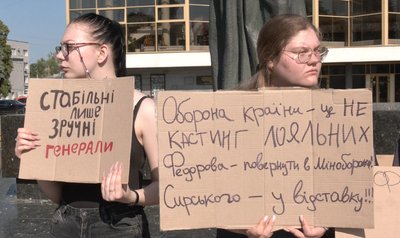 СТАБІЛЬНІ
ЛИШЕ
ЗРУЧНІ
ГЕНЕРАЛИ
ОБОРОНА КРАЇНИ - ЦЕ НЕ
КАСТИНГ ЛОЯЛЬНИХ
ФЕДОРОВА - ПОВЕРНУТИ В МІНОБОРОНИ!
СИРСЬКОГО - У ВІДСТАВКУ!!!